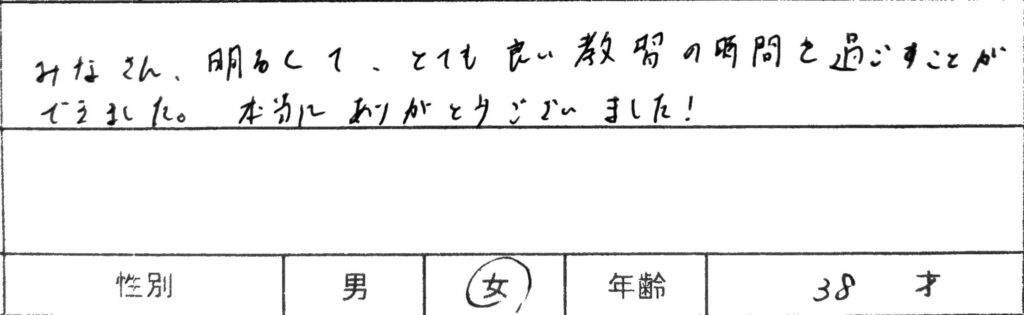 みなさん、明るくて、とても良い教習の時間を過ごすことが
できました。本当にありがとうございました!
性別 男 女 年齢 38 才